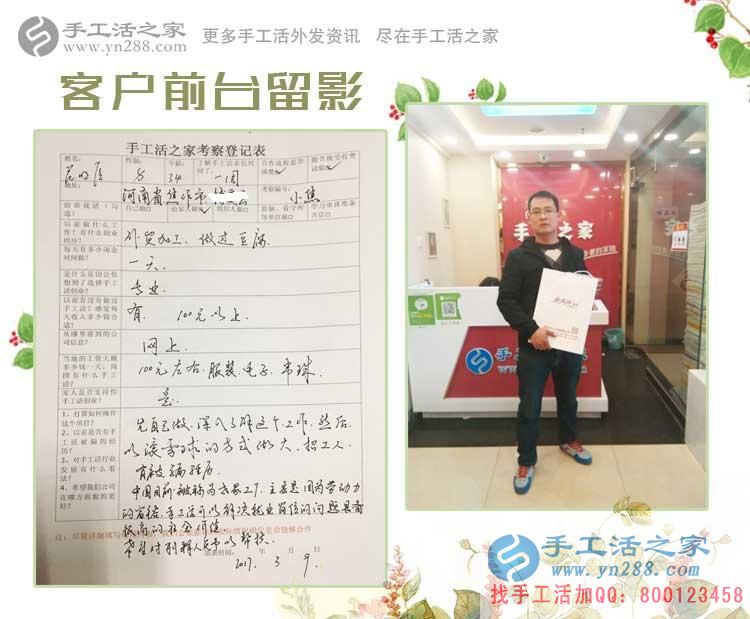 手工活之家
www.yn288.com
更多手工活外发资讯 尽在手工活之家
客户前台留影
手工活之家考察登记表
姓名:
性别:
年龄:
34
了解手工活来长时间了:
一周
合作流程是否清楚
能否接受收费试做
地址:
河南省焦作市
考察编号:
小焦
给谁说话(勾选)
自己做
给家人做
组织人做
监狱、看守所等单位做
学习串珠准备开店
以前做什么工作?有什么创业经历?
外贸加工、做过豆腐.
每天有多少闲余时间做?
一天
是什么原因让你想到了选择手工活创业?
专业
以前有没有做过手工活?感觉每天收入多少钱合适?
有. 100元以上.
从哪里看到的公司信息?
网上.
当地的工资大概多少钱一天,周围有什么手工活?
100元左右.服装.电子.串珠.
家人是否支持你手工活创业?
是
1、打算如何操作这个项目?
2、以前是否有手工活被骗的经历?
3、对手工活行业发展有什么看法?
4、希望我们公司在哪方面做的更好?
先自己做,深入了解这个工作,然后
以滚雪球的方式做大,招工人.
有被骗经历
中国目前被称为世界工厂.主要是因为劳动力
注:
填表时间:
年 月 日
2017. 3 9.
手工活之家
手工活之家
www.
手工活之家
www.yn288.com
找手工活加QQ:800123458